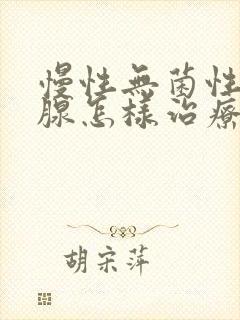 慢性無菌性
腺怎样治療
胡宋萍